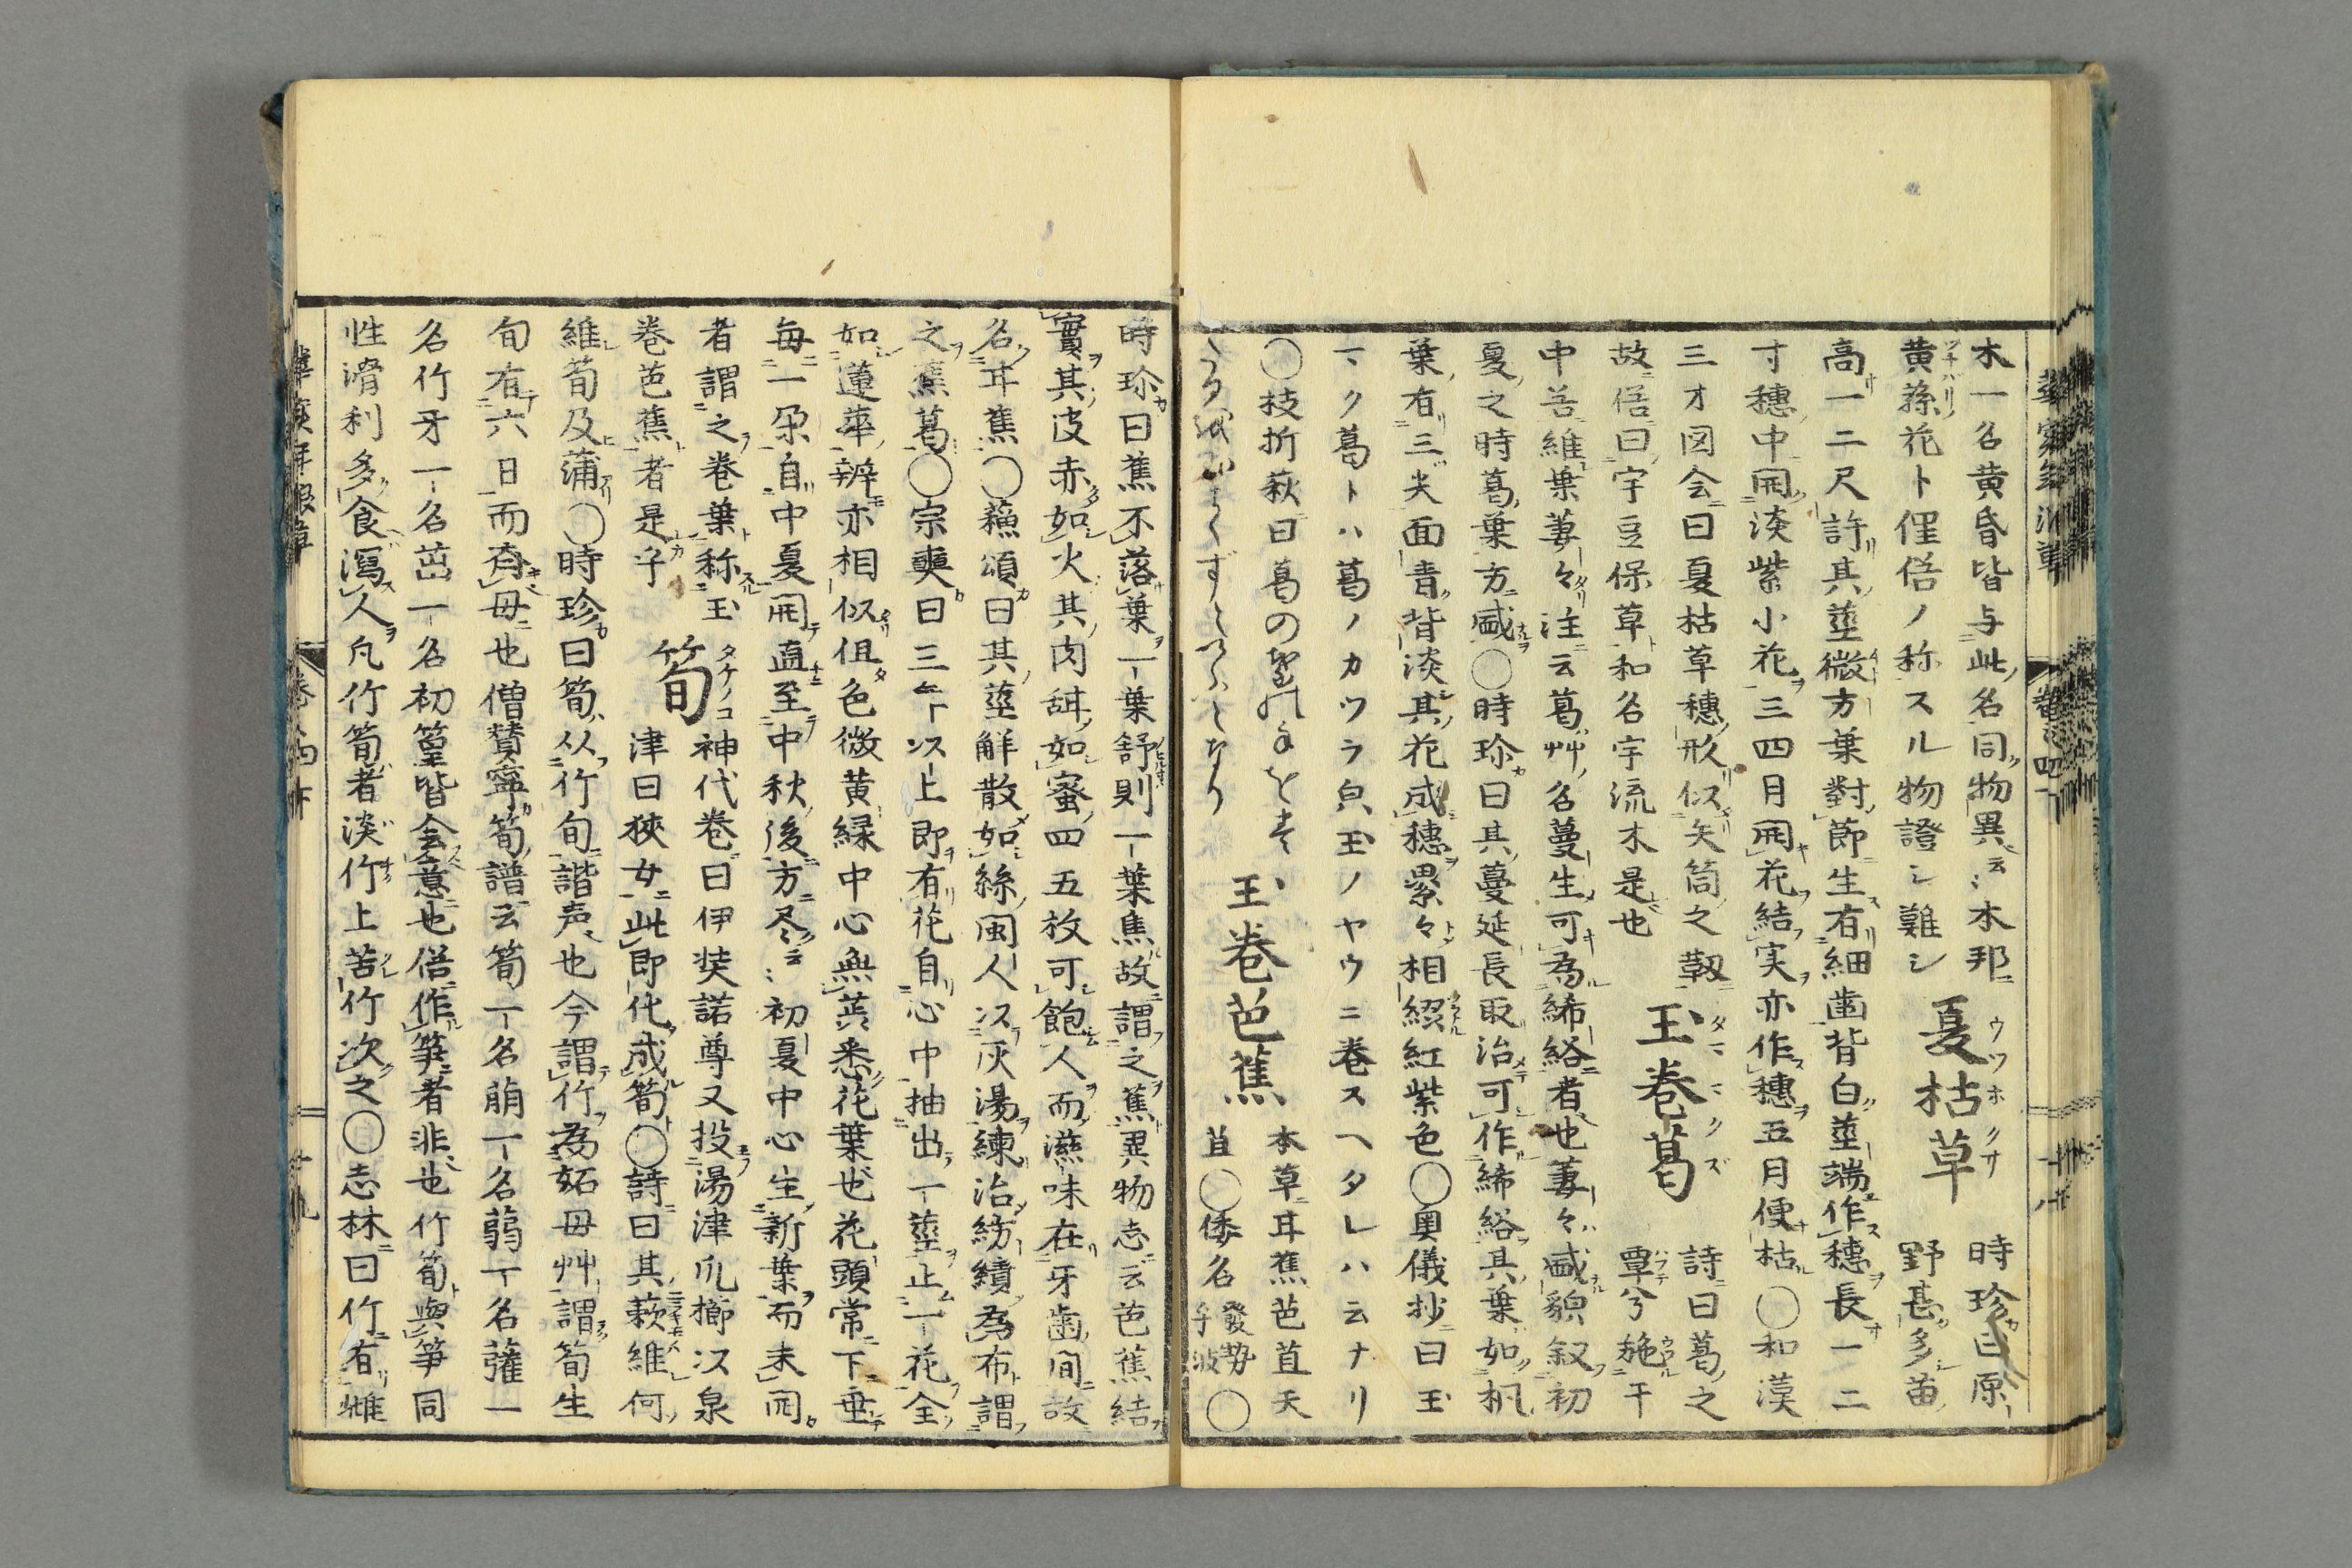 木一名黄昏皆与此名同物異云〻本邦
黄蘓花ト俚俗ノ称スル物證シ難シ
夏枯草
ウツホクサ
時珍曰原
野甚多苗
高一二尺許其莖微方葉對節生有細齒背白莖端作穗長一二
寸穗中開淡紫小花三四月開花結実亦作穗五月便枯〇和漢
三才図会曰夏枯草穗形似矢筒之靱
故俗曰宇豆保草和名宇流木是也
玉巻葛
タママクズ
詩曰葛之
覃兮施于
中谷維葉萋々注云葛艸名蔓生可為絺綌者也萋々盛貌叙初
夏之時葛葉方盛〇時珍曰其蔓延長取治可作絺綌其葉如楓
葉有三尖面青背淡其花成穗累々相綴紅紫色〇奥儀抄曰玉
マク葛トハ葛ノカツラ㒵玉ノヤウニ巻スヘタレハ云ナリ
〇枝折萩曰葛の
玉巻芭蕉
本草甘蕉芭苴天
苴〇倭名
発勢乎波〇
時珍曰蕉不落葉一葉舒則一葉焦故謂之蕉異物志云芭蕉結
實其皮赤如火其肉甜如蜜四五放可飽人而滋味在牙歯间故
名甘蕉〇蘓頌曰其莖解散如絲閩人以灰湯練治紡績為布謂
之蕉葛〇宗奭曰三年以上即有花自心中抽出一莖止一花全
如蓮華辨亦相似但色微黄緑中心無蕋悉花葉也花頭常下垂
毎一朶自中夏開直至中秋後方尽云〻初夏中心生新葉而未開
者謂之巻葉称玉
巻芭蕉者是乎
筍
タケノコ
神代巻曰伊奘諾尊又投湯津爪櫛以泉
津曰狹女此即化成筍〇詩曰其蔌維何
維筍及蒲〇時珍曰筍从竹旬諧声也今謂竹為妬母艸謂筍生
旬有六日而斉母也僧賛寧筍譜云筍一名萠一名蒻一名虇一
名竹牙一名茁一名初篁皆会意也俗作笋者非也竹筍與笋同
性滑利多食瀉人凡竹筍者淡竹上苦竹次之〇志林曰竹有雌